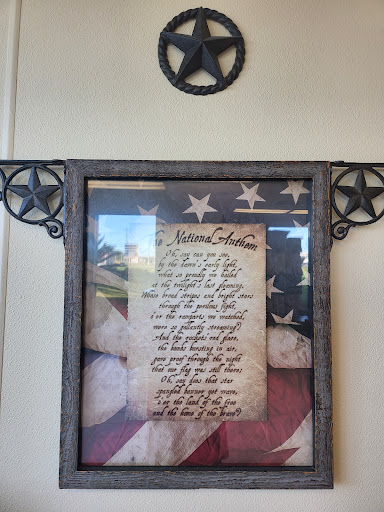 The National Anthem
Oh, say can you see,
by the dawn's early light,
what so proudly we hailed
at the twilight's last gleaming,
Whose broad stripes and bright stars
through the perilous fight,
o'er the ramparts we watched,
were so gallantly streaming?
And the rocket's red glare,
the bombs bursting in air,
gave proof through the night
that our flag was still there;
Oh, say does that star
spangled banner yet wave,
o'er the land of the free
and the home of the brave?